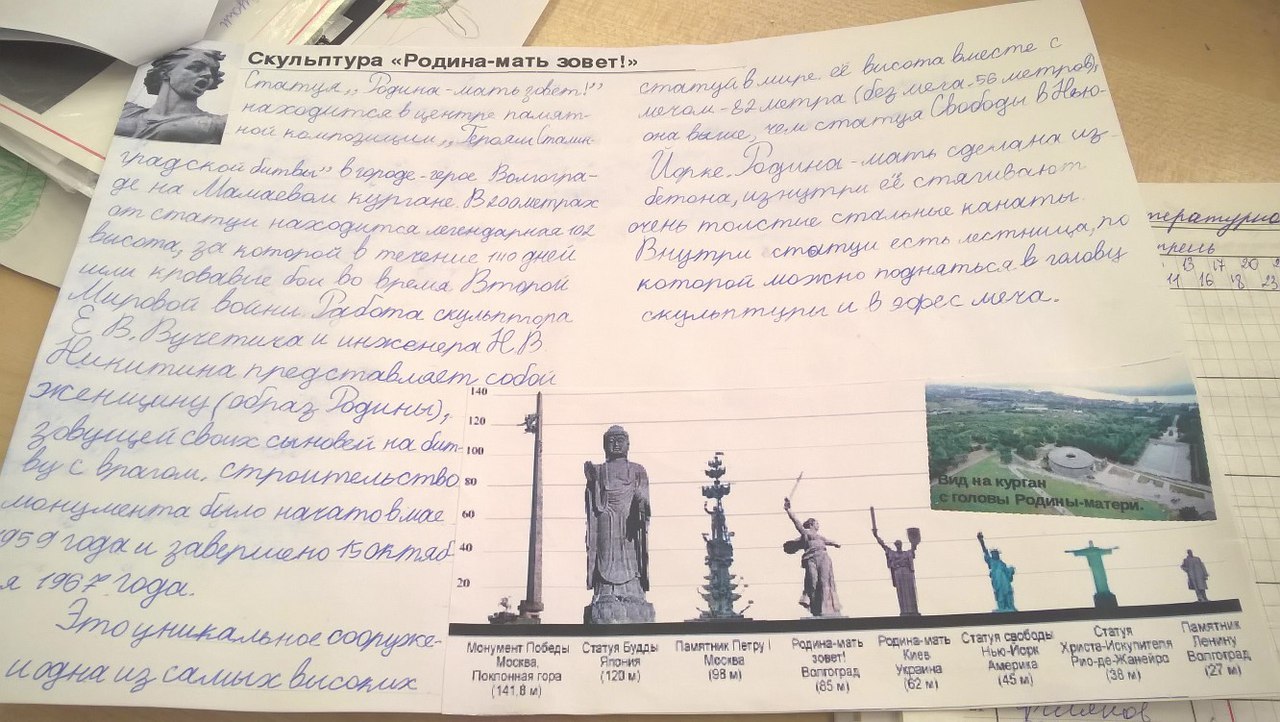 Скульптура «Родина-мать зовет!»
Статуя „Родина-мать зовёт!"
находится в центре памят-
ной композиции „Героям Сталин
градской битвы" в городе-герое Волгогра-
де на Мамаевом кургане. В 200 метрах
от статуи находится легендарная 102
высота, за которой в течение 140 дней
шли кровавые бои во время Второй
Мировой войны. Работа скульптора
Е В. Вучетича и инженера Н.В.
Никитина представляет собой
женщину (образ Родины),
зовущей своих сыновей на бит-
ву с врагом. строительство
монумента было начато в мае
959 года и завершено 15 октяб-
я 1967 года.
Это уникальное сооруже-
и одна из самых высоких
статуй в мире. её высота вместе с
мечом - 82 метра (без меча - 56 метров),
она выше, чем статуя Свободы в Нью-
Йорке. Родина-мать сделана из-
бетона, изнутри её стягивают
очень толстые стальные канаты.
Внутри статуи есть лестница, по
которой можно подняться в голову
скульптуры и в эфес меча.
140
120
100
80
60
40
20
Вид на курган
с головы Родины-матери.
Монумент Победы
Москва,
Поклонная гора
(141,8 м)
Статуя Будды
Япония
(120 м)
Памятник Петру I
Москва
(98 м)
Родина-мать
зовет!
Волгоград
(85 м)
Родина-мать
Киев
Украина
(62 м)
Статуя свободы
Нью-Йорк
Америка
(45 м)
Статуя
Христа-Искупителя
Рио-де-Жанейро
(38 м)
Памятник
Ленину
Волгоград
(27 м)
тературно
прель
13 17 20
11 16 18 23